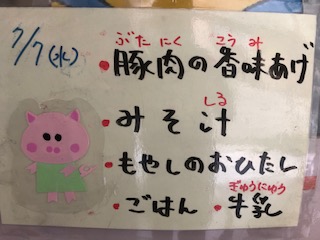 7/7(水)
ぶた にく こう み
・豚肉の香味あげ
しる
・みそ汁
・もやしのおひたし
ぎゅうにゅう
・ごはん ・牛乳